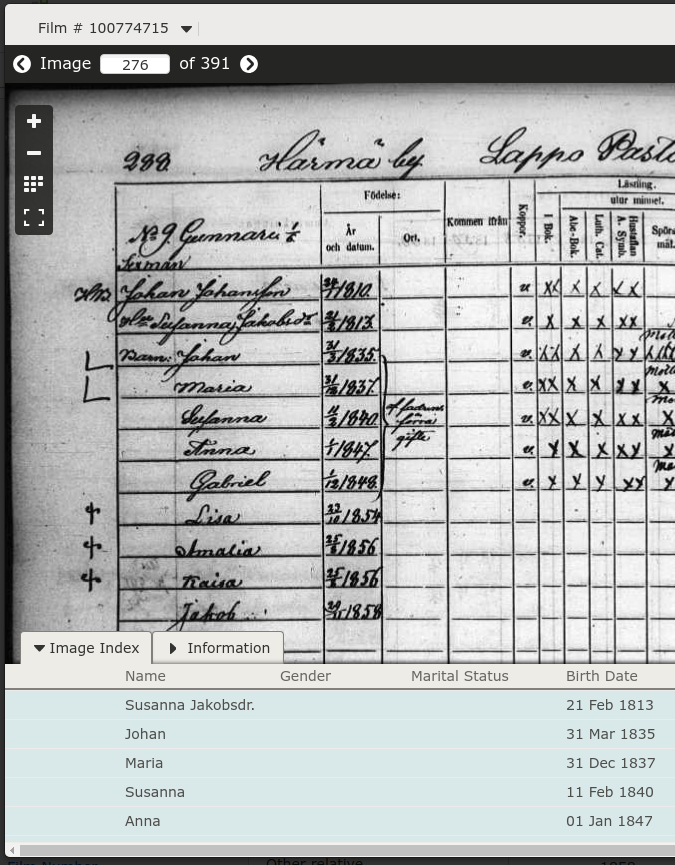 Film # 100774715
Image 276 of 391
288. Härmä by. Lappo
Läsning.
Födelse: utur minnet.
Kommen ifrån Koppor. I Bok. Abc-Bok. Luth. Cat. Hustaflan A. Symb.
År och datum. Ort.
No 9. Gunnari 1/6
Johan Johansson 1810.
Susanna Jakobsdr 21/2 1813.
Barn: Johan 31/3 1835.
Maria 31/12 1837.
Susanna 11/2 1840. af fadrens
förra
gifte
Anna 1/1 1847.
Gabriel 1/12 1848.
Lisa 22/10 1854
Amalia 25/8 1856
Kaisa 25/8 1856
Jakob 1858
Image Index Information
Name Gender Marital Status Birth Date
Susanna Jakobsdr. 21 Feb 1813
Johan 31 Mar 1835
Maria 31 Dec 1837
Susanna 11 Feb 1840
Anna 01 Jan 1847